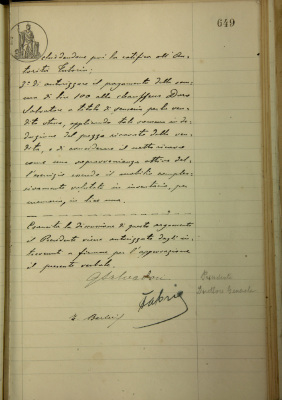 649
chiedendone poi la ratifica all'Au-
torità Tutoria;
3° di autorizzare il pagamento della som-
ma di lire 100 allo chauffeur
Salvatore a titolo di per la ven-
dita stessa, applicando tale somma in de-
duzione del prezzo ricavato dalla ven-
dita, e di considerare il netto ricavo
come una sopravvenienza attiva del-
l'esercizio essendo il mobile comples-
sivamente valutato in inventario, per
memoria, in lire una.
Esaurita la discussione di questo argomento
il Presidente viene autorizzato dagli in-
tervenuti a firmare per l'approvazione
il presente verbale.